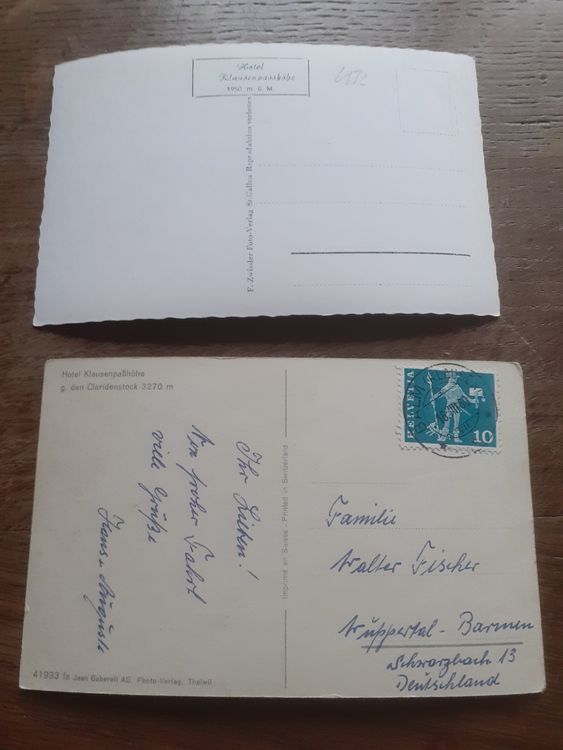 Hotel
Klausenpasshöhe
1950 m ü M.
F. Zwinder Foto-Verlag St. Gallen Reproduktion verboten
Hotel Klausenpaßhöhe
g. den Claridenstock 3270 m
Ihr Lieben!
Von froher Fahrt
viele Grüße
Hans + Auguste
Imprimé en Suisse - Printed in Switzerland
41933 fa Jean Gaberell AG. Photo-Verlag, Thalwil
HELVETIA
10
Familie
Walter Fischer
Wuppertal-Barmen
Schwarzbach 13
Deutschland